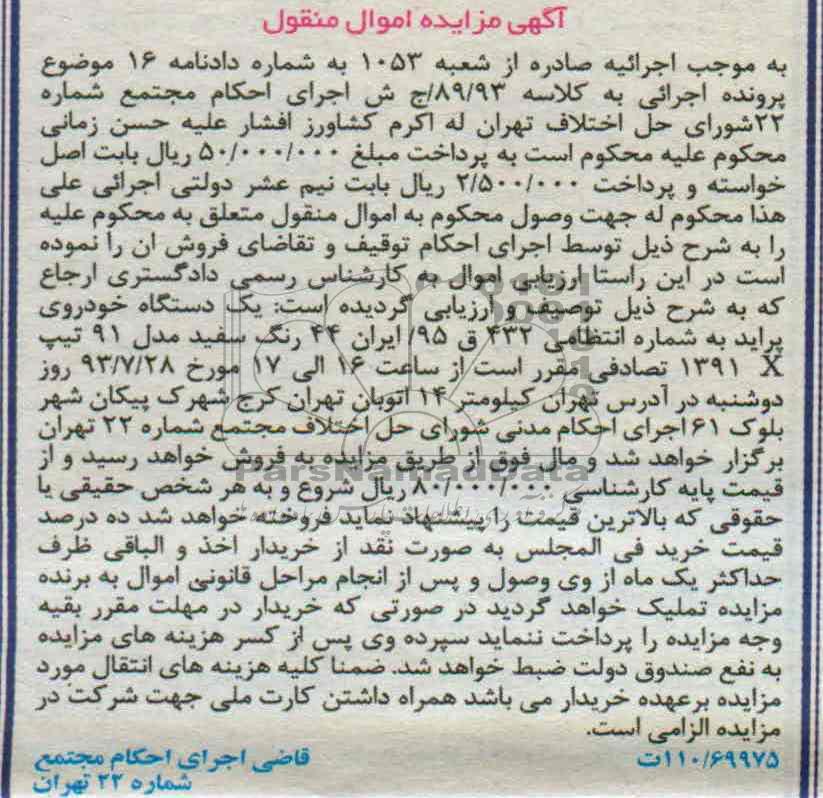 آگهی مزایده اموال منقول
به موجب اجرائیه صادره از شعبه ۱۰۵۳ به شماره دادنامه ۱۶ موضوع
پرونده اجرائی به کلاسه ۸۹/۹۳/ج ش اجرای احکام مجتمع شماره
۲۲شورای حل اختلاف تهران له اکرم کشاورز افشار علیه حسن زمانی
محکوم علیه محکوم است به پرداخت مبلغ ۵۰/۰۰۰/۰۰۰ ریال بابت اصل
خواسته و پرداخت ۲/۵۰۰/۰۰۰ ریال بابت نیم عشر دولتی اجرائی علی
هذا محکوم له جهت وصول محکوم به اموال منقول متعلق به محکوم علیه
را به شرح ذیل توسط اجرای احکام توقیف و تقاضای فروش ان را نموده
است در این راستا ارزیابی اموال به کارشناس رسمی دادگستری ارجاع
که به شرح ذیل توصیف و ارزیابی گردیده است: یک دستگاه خودروی
پراید به شماره انتظامی ۴۳۲ ق ۹۵/ ایران ۴۴ رنگ سفید مدل ۹۱ تیپ
X ۱۳۹۱ تصادفی مقرر است از ساعت ۱۶ الی ۱۷ مورخ ۹۳/۷/۲۸ روز
دوشنبه در آدرس تهران کیلومتر ۱۴ اتوبان تهران کرج شهرک پیکان شهر
بلوک ۶۱ اجرای احکام مدنی شورای حل اختلاف مجتمع شماره ۲۲ تهران
برگزار خواهد شد و مال فوق از طریق مزایده به فروش خواهد رسید و از
قیمت پایه کارشناسی ۸۰/۰۰۰/۰۰۰ ریال شروع و به هر شخص حقیقی یا
حقوقی که بالاترین قیمت را پیشنهاد نماید فروخته خواهد شد ده درصد
قیمت خرید فی المجلس به صورت نقد از خریدار اخذ و الباقی ظرف
حداکثر یک ماه از وی وصول و پس از انجام مراحل قانونی اموال به برنده
مزایده تملیک خواهد گردید در صورتی که خریدار در مهلت مقرر بقیه
وجه مزایده را پرداخت ننماید سپرده وی پس از کسر هزینه های مزایده
به نفع صندوق دولت ضبط خواهد شد. ضمنا کلیه هزینه های انتقال مورد
مزایده برعهده خریدار می باشد همراه داشتن کارت ملی جهت شرکت در
مزایده الزامی است.
۱۱۰/۶۹۹۷۵ت
قاضی اجرای احکام مجتمع
شماره ۲۲ تهران
ParsNamadData